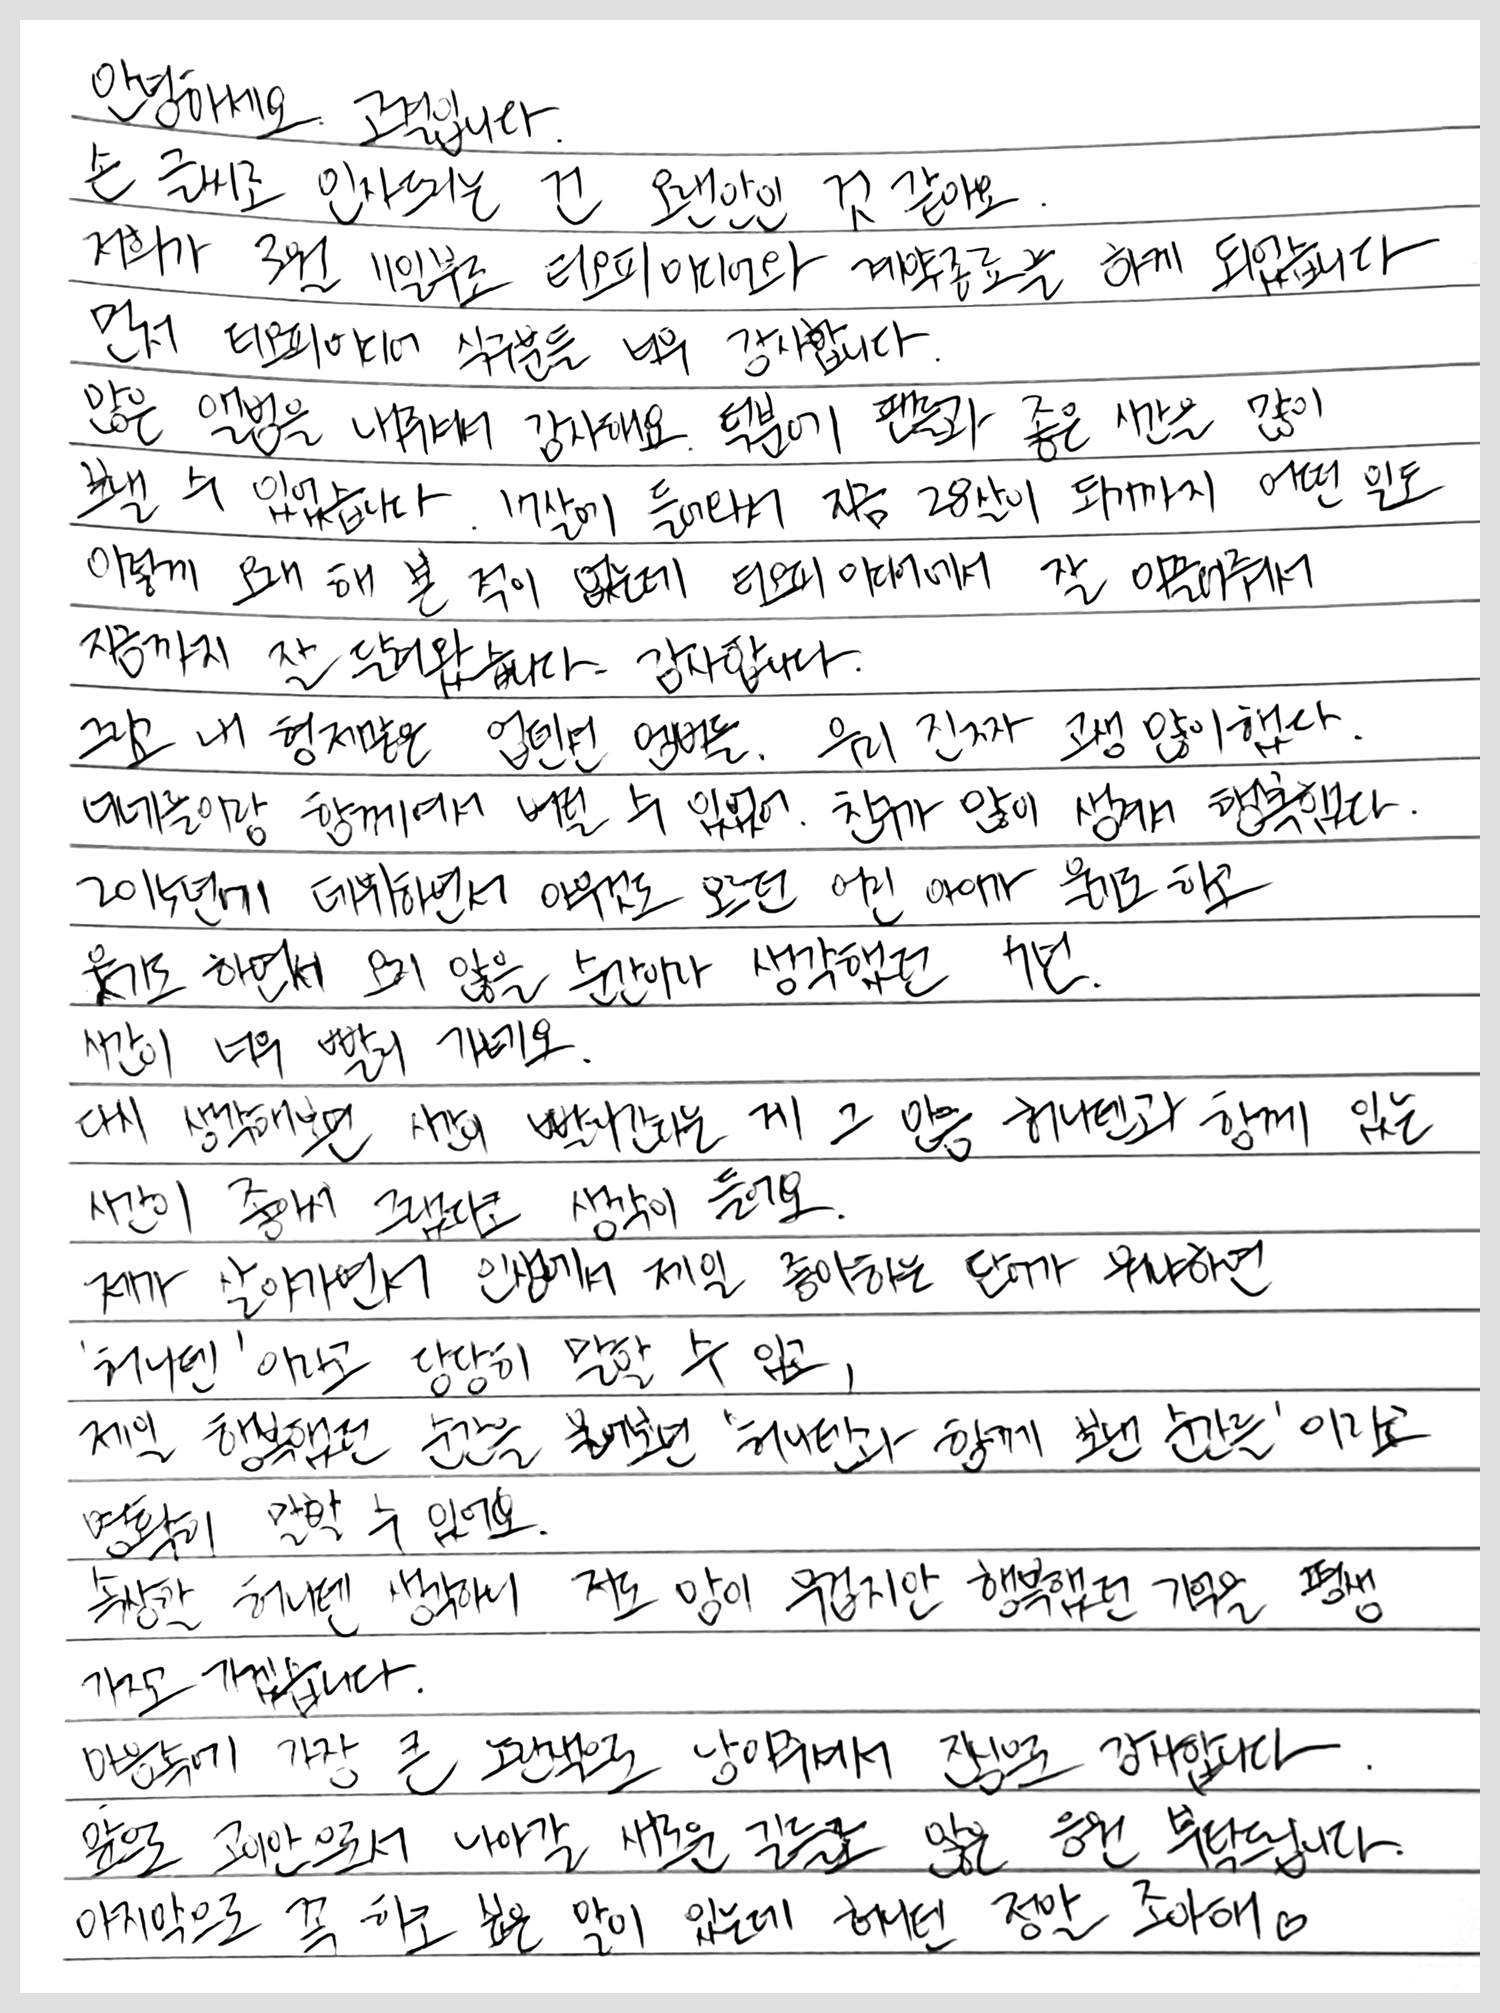 안녕하세요. 고결입니다.
손 글씨로 인사드리는 건 오랜만인 것 같아요.
저희가 3월 11일부로 티오피미디어와 계약종료를 하게 되었습니다
먼저 티오피미디어 식구분들 너무 감사합니다.
많은 앨범을 내주셔서 감사해요. 덕분에 팬들과 좋은 시간을 많이
보낼 수 있었습니다. 17살에 들어와서 지금 28살이 되기까지 어떤 일도
이렇게 오래 해 본 적이 없는데 티오피미디어에서 잘 이끌어주셔서
지금까지 잘 달려왔습니다. 감사합니다.
그리고 내 형제같은 업텐션 멤버들. 우리 진짜 고생 많이했다.
너네들이랑 함께여서 버틸 수 있었어. 친구가 많이 생겨서 행복했다.
2015년에 데뷔하면서 아무것도 모르던 어린 아이가 울기도 하고
웃기도 하면서 오지 않을 순간이라 생각했던 7년.
시간이 너무 빨리 가네요.
다시 생각해보면 시간이 빨리간다는 게 그 만큼 허니텐과 함께 있는
시간이 좋아서 그랬다고 생각이 들어요.
제가 살아가면서 인생에서 제일 좋아하는 단어가 뭐냐하면
'허니텐'이라고 당당히 말할 수 있고,
제일 행복했던 순간을 물어보면 '허니텐과 함께 보낸 순간들'이라고
명확히 말할 수 있어요.
속상할 허니텐 생각하니 저도 맘이 무겁지만 행복했던 기억을 평생
가지고 가겠습니다.
마음속에 가장 큰 조각으로 남아주셔서 진심으로 감사합니다.
앞으로 고이안으로서 나아갈 새로운 길들로 많은 응원 부탁드립니다.
마지막으로 꼭 하고 싶은 말이 있는데 허니텐 정말 조아해♡